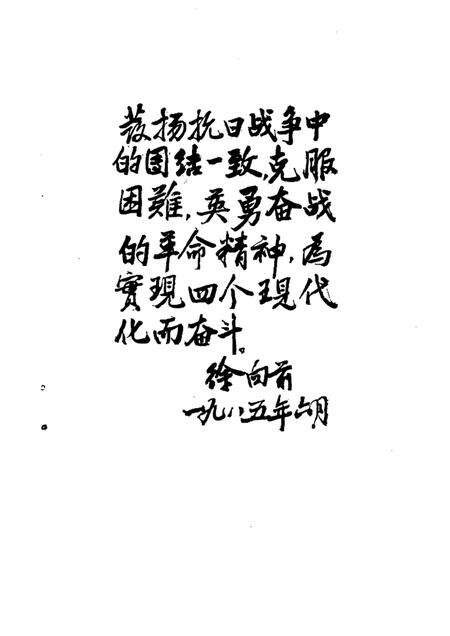 发扬抗日战争中
的团结一致,克服
困難,英勇奋战
的革命精神,為
實現四个現代
化而奋斗。
徐向前
一九八五年六月